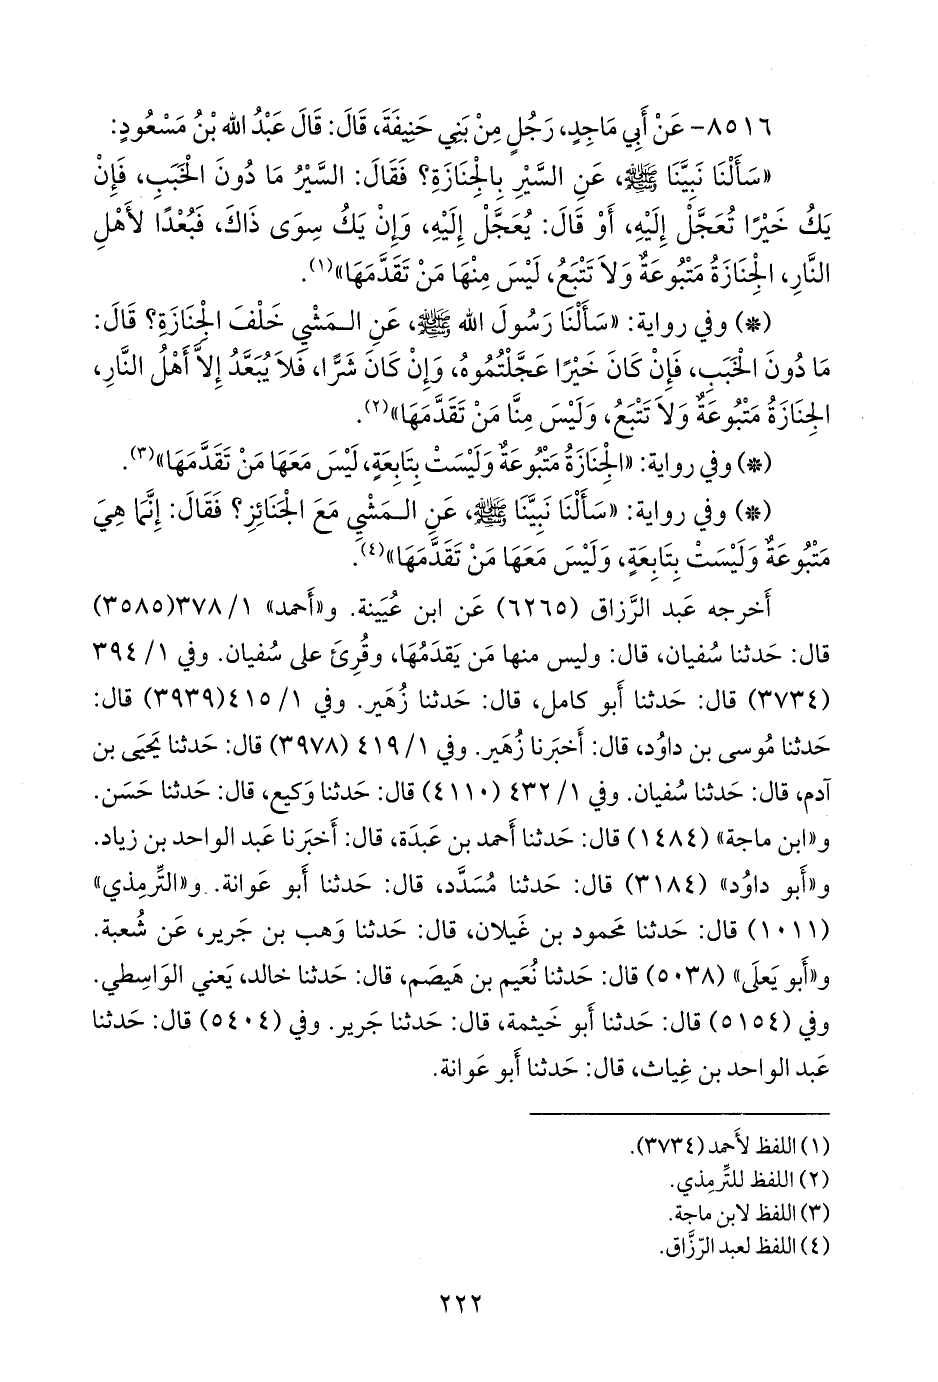 ٨٥١٦- عَنْ أَبِي مَاجِدٍ، رَجُلٍ مِنْ بَنِي حَنِيفَةَ، قَالَ: قَالَ عَبْدُ الله بْنُ مَسْعُودٍ:
«سَأَلْنَا نَبِيَّنَا ﷺ، عَنِ السَّيْرِ بِالْجِنَازَةِ؟ فَقَالَ: السَّيْرُ مَا دُونَ الْخَبَبِ، فَإِنْ
يَكُ خَيْرًا تُعَجَّلْ إِلَيْهِ، أَوْ قَالَ: يُعَجَّلْ إِلَيْهِ، وَإِنْ يَكُ سِوَى ذَاكَ، فَبُعْدًا لأَهْلِ
النَّارِ، الْجِنَازَةُ مَتْبُوعَةٌ وَلاَ تَتْبَعُ، لَيْسَ مِنْهَا مَنْ تَقَدَّمَهَا»(١).
(*) وفي رواية: «سَأَلْنَا رَسُولَ الله ﷺ، عَنِ الْمَشْيِ خَلْفَ الْجِنَازَةِ؟ قَالَ:
مَا دُونَ الْخَبَبِ، فَإِنْ كَانَ خَيْرًا عَجَّلْتُمُوهُ، وَإِنْ كَانَ شَرًّا، فَلاَ يُبَعَّدُ إِلاَّ أَهْلُ النَّارِ،
الْجِنَازَةُ مَتْبُوعَةٌ وَلاَ تَتْبَعُ، وَلَيْسَ مِنَّا مَنْ تَقَدَّمَهَا»(٢).
(*) وفي رواية: «الْجِنَازَةُ مَتْبُوعَةٌ وَلَيْسَتْ بِتَابِعَةٍ، لَيْسَ مَعَهَا مَنْ تَقَدَّمَهَا»(٣).
(*) وفي رواية: «سَأَلْنَا نَبِيَّنَا ﷺ، عَنِ الْمَشْيِ مَعَ الْجَنَائِزِ؟ فَقَالَ: إِنَّمَا هِيَ
مَتْبُوعَةٌ وَلَيْسَتْ بِتَابِعَةٍ، وَلَيْسَ مَعَهَا مَنْ تَقَدَّمَهَا»(٤).
أَخرجه عَبد الرَّزاق (٦٢٦٥) عَن ابن عُيَينة. و«أَحمد» ١/ ٣٧٨(٣٥٨٥)
قال: حَدثنا سُفيان، قال: وليس منها مَن يَقدَمُهَا، وقُرِئَ على سُفيان. وفي ١/ ٣٩٤
(٣٧٣٤) قال: حَدثنا أَبو كامل، قال: حَدثنا زُهَير. وفي ١/ ٤١٥(٣٩٣٩) قال:
حَدثنا مُوسى بن داوُد، قال: أَخبَرنا زُهَير. وفي ١/ ٤١٩ (٣٩٧٨) قال: حَدثنا يَحيَى بن
آدم، قال: حَدثنا سُفيان. وفي ١/ ٤٣٢ (٤١١٠) قال: حَدثنا وَكيع، قال: حَدثنا حَسَن.
و«ابن ماجة» (١٤٨٤) قال: حَدثنا أَحمد بن عَبدَة، قال: أَخبَرنا عَبد الواحد بن زياد.
و«أَبو داوُد» (٣١٨٤) قال: حَدثنا مُسَدَّد، قال: حَدثنا أَبو عَوانة. و«التِّرمِذي»
(١٠١١) قال: حَدثنا محمود بن غَيلان، قال: حَدثنا وَهب بن جَرير، عَن شُعبة.
و«أَبو يَعلَى» (٥٠٣٨) قال: حَدثنا نُعَيم بن هَيصَم، قال: حَدثنا خالد، يَعني الوَاسِطي.
وفي (٥١٥٤) قال: حَدثنا أَبو خَيثمة، قال: حَدثنا جَرير. وفي (٥٤٠٤) قال: حَدثنا
عَبد الواحد بن غِياث، قال: حَدثنا أَبو عَوانة.
(١) اللفظ لأَحمد (٣٧٣٤).
(٢) اللفظ للتِّرمِذي.
(٣) اللفظ لابن ماجة.
(٤) اللفظ لعبد الرَّزَّاق.
٢٢٢